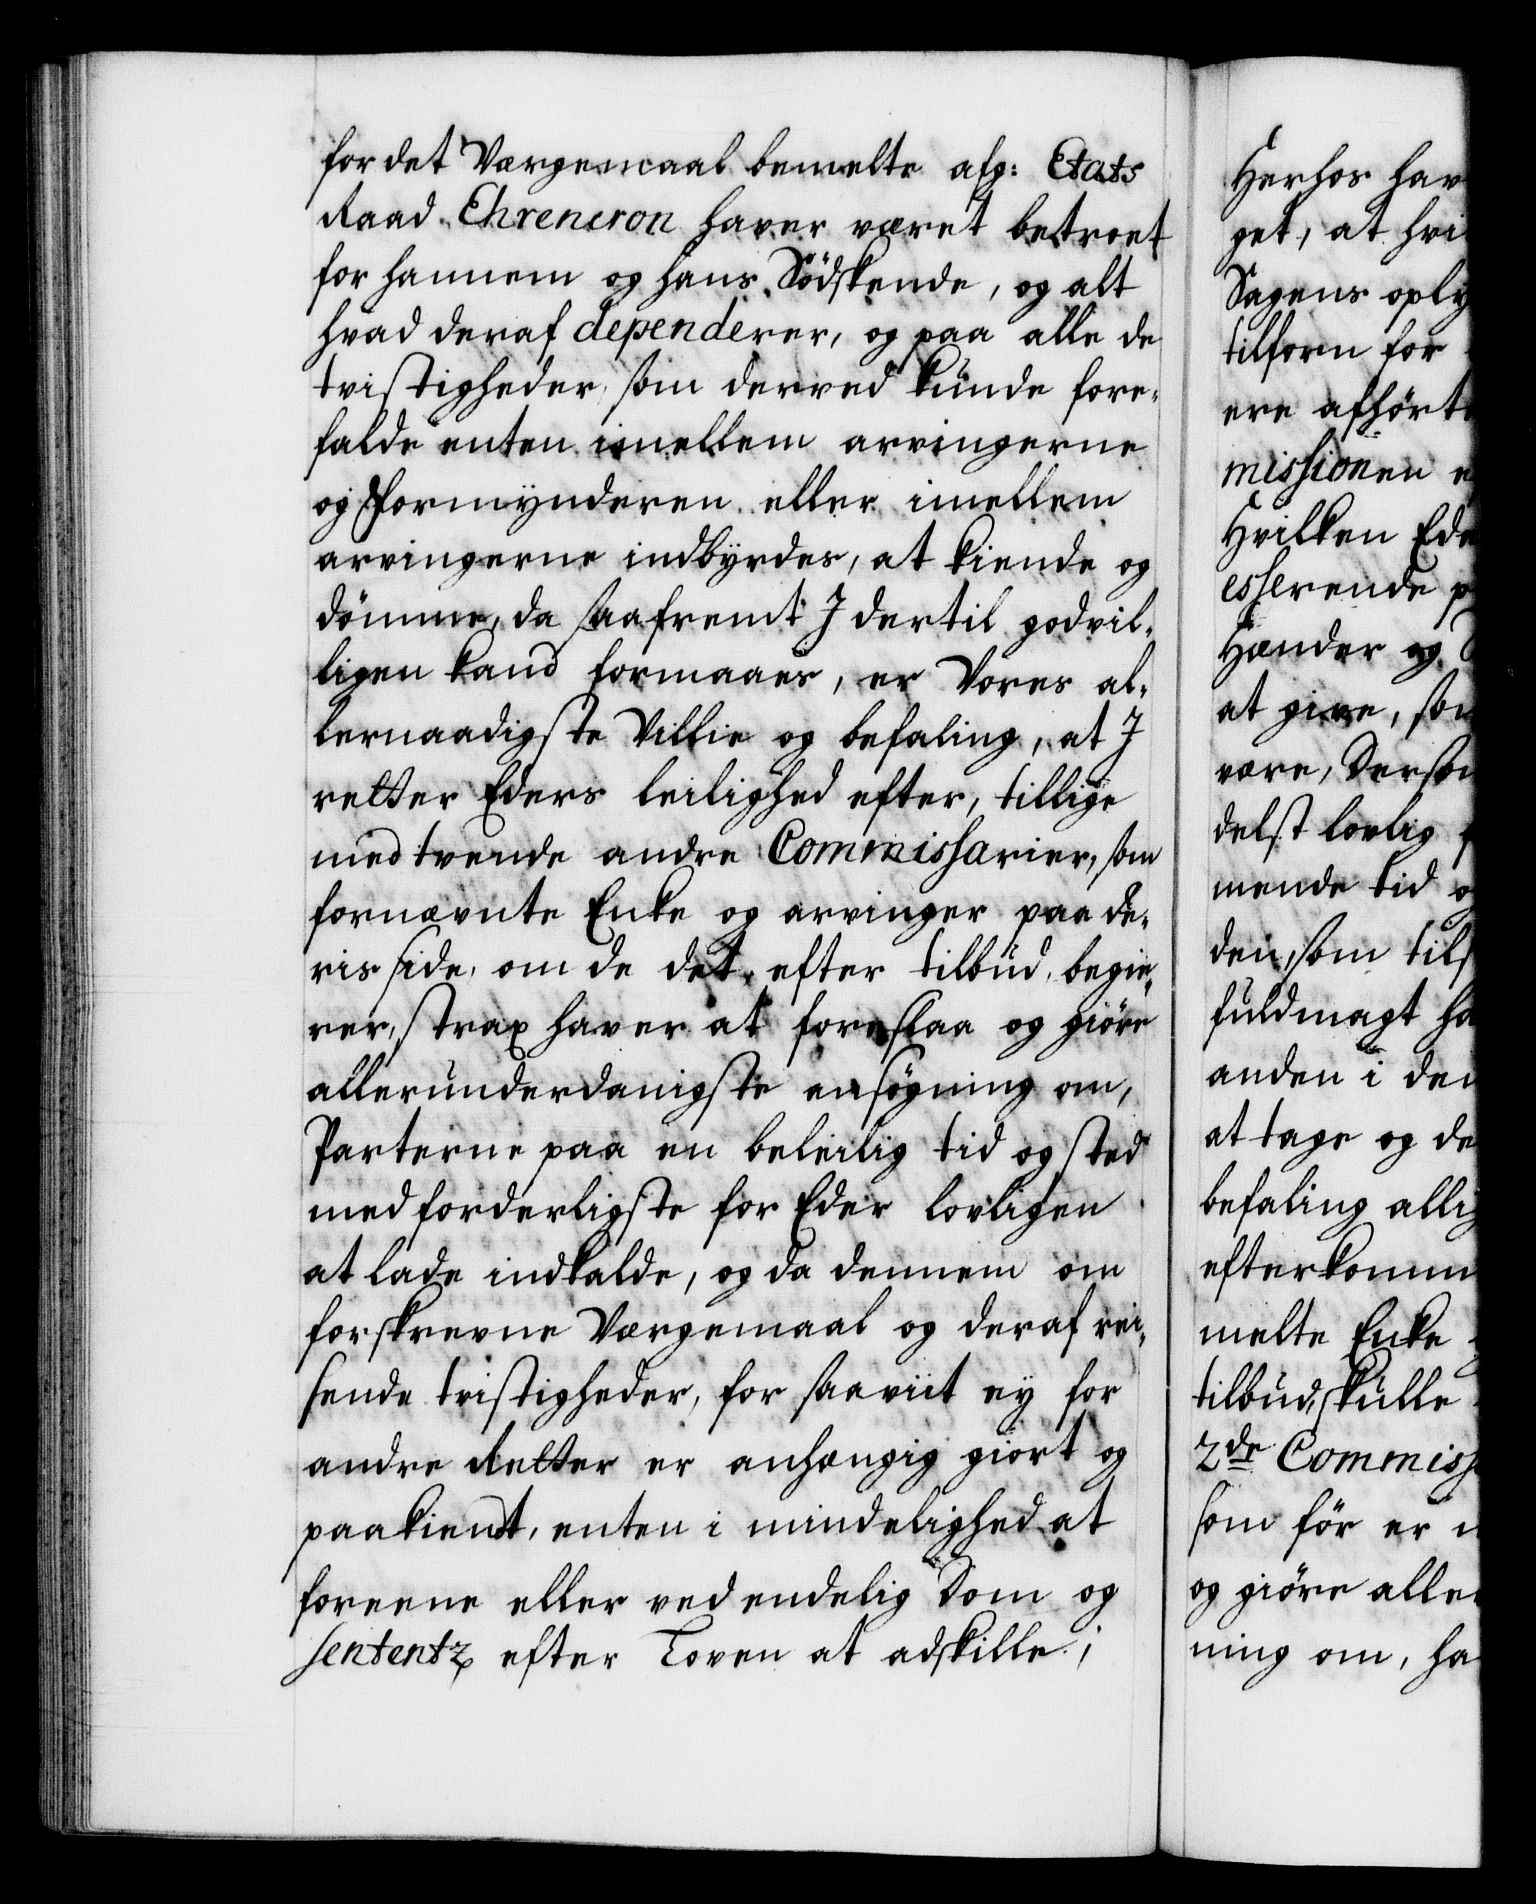 for det Værgemaal bemelte afg: Etats
Raad Ehrencron haver været betroet
for hannem og hans Södskende, og alt
hvad deraf dependerer, og paa alle de
tvistigheder, som derved kunde fore-
falde enten imellem arvingerne
og Formynderen eller imellem
arvingerne indbyrdes, at kiende og
dömme, da saafremt I dertil godvil-
ligen kand formaaes, er Vores al-
lernaadigste Villie og befaling, at I
retter Eders leilighed efter, tillige
med tvende andre Commissarier, som
fornævnte Enke og arvinger paa de-
ris side, om de det, efter tilbud, begie-
rer, strax haver at foreslaa og giöre
allerunderdanigste ansögning om,
Parterne paa en beleilig tid og sted
med forderligste for Eder lovligen
at lade indkalde, og da dennem om
forskrevne Værgemaal og deraf rei-
sende tvistigheder, for saaviit ey for
andre Retter er anhængig giort og
paakiendt, enten i mindelighed at
foreene eller ved endelig Dom og
sententz efter Loven at adskille;
Herhos hav
get, at hvi
Sagens oply
tilforn for
ere afhørt
missionen
Hvilken Ed
esserende
Hænder og
at give, so
være, Derso
delst lovlig
mende tid
den, som tils
fuldmagt ha
anden i de
at tage og de
befaling alli
efterkomm
melte Enke
tilbud, skulle
2de Commiss
som för er
og giöre alle
ning om, ha